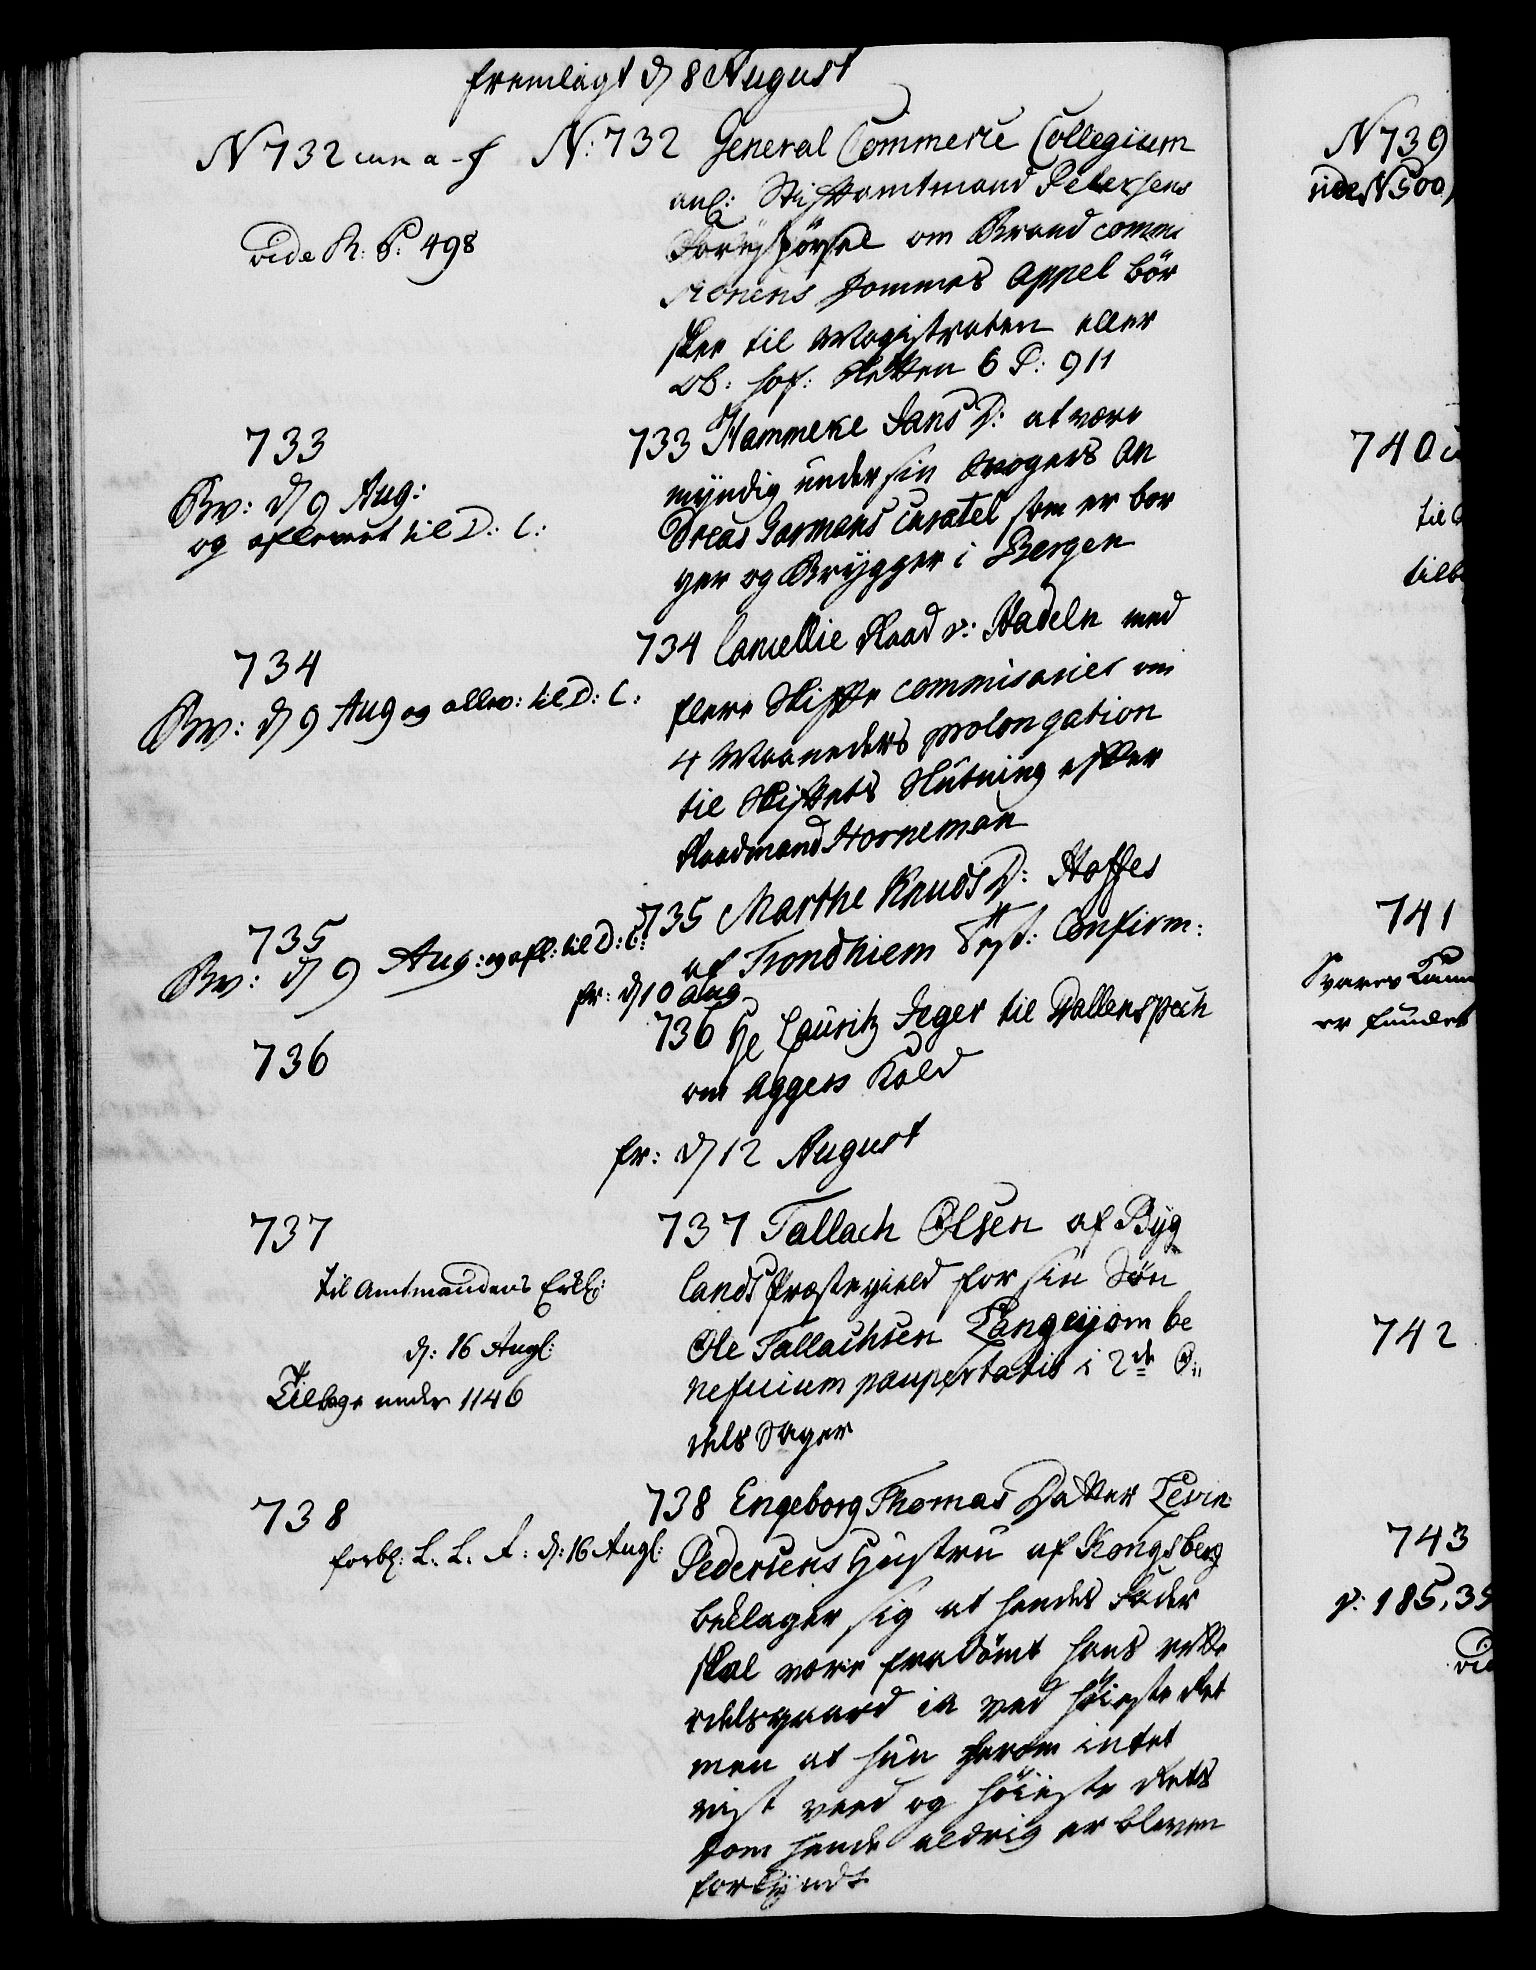 fremlagt d 8 August
N 732 cum a-f
vide R: P: 498
N: 732 General Commerce Collegium
anl: Stiftamtmand Petersens
Forespørsel om Brand commi
sionens Dommes Appel bör
skee til Magistraten eller
Ob: hof: Retten 6 P: 911
733
Bv: d 9 Aug:
og afleveret til D: C:
733 Hammeke Jans D: at være
myndig under sin Svogers An
dreas Garmans curatel som er bor
ger og Brygger i Bergen
734
Bv: d 9 Aug og allev: til D: C:
734 Cancellie Raad v: Hadeln med
flere Skifte commisarier om
4 Maaneders prolongation
til Skiftets Slutning efter
Raadmand Horneman
735
Bv: d 9 Aug: og afl: til D: C:
735 Marthe Knuds D: Hoffes
af Trondhiem Test: Confirm:
fr: d 10 Aug
736
736 Hr Lauritz Jeger til
om Aggers Kald
fr: d 12 August
737
til Amtmandens Erkl:
d: 16 Augl:
Tilbage under 1146
737 Tallach Olsen af Byg
lands Præstegield for sin Søn
Ole Tallachsen Langeijom be
neficium paupertatis i 2de O:
dels Sager
738
forbl: L. L. A: d: 16 Augl:
738 Engeborg Thomas Datter Levin
Pedersens Hustru af Kongsberg
beklager sig at hendes Fader
skal være fradømt hans rette
odelsgaard ia ved høieste Ret
men at hun herom intet
vist veed og høieste Rets
Dom hende aldrig er bleven
forkyndt
N 739
vide N 500
740
til
tilb
741
Svares
er fundet
742
743
p: 185, 35
vid